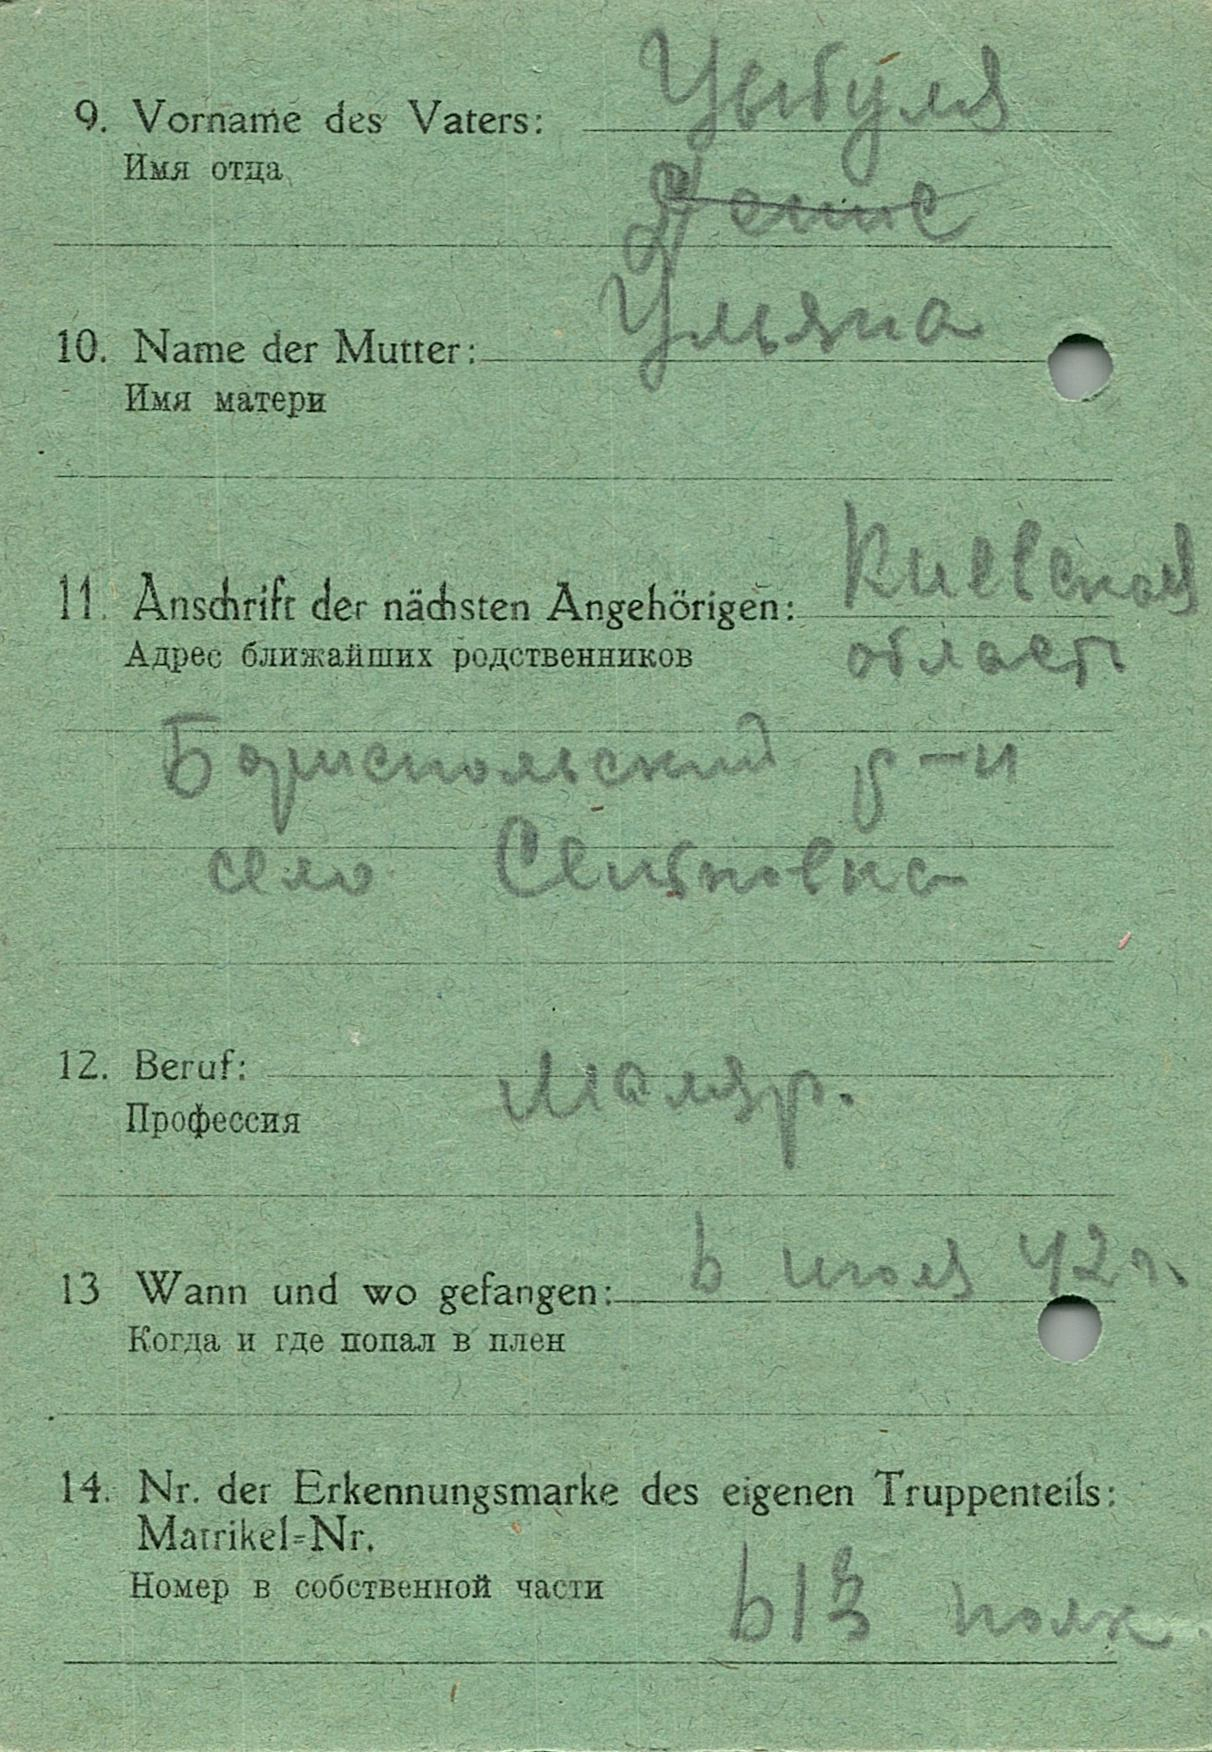 9. Vorname des Vaters: Цыбуля
Имя отца
Денис
10. Name der Mutter: Ульяна
Имя матери
11. Anschrift der nächsten Angehörigen: Киевская
Адрес ближайших родственников область
Бориспольский р-н
село
12. Beruf: Маляр.
Профессия
13 Wann und wo gefangen: в июля 42 г.
Когда и где попал в плен
14. Nr. der Erkennungsmarke des eigenen Truppenteils:
Matrikel=Nr.
Номер в собственной части 613 полк.